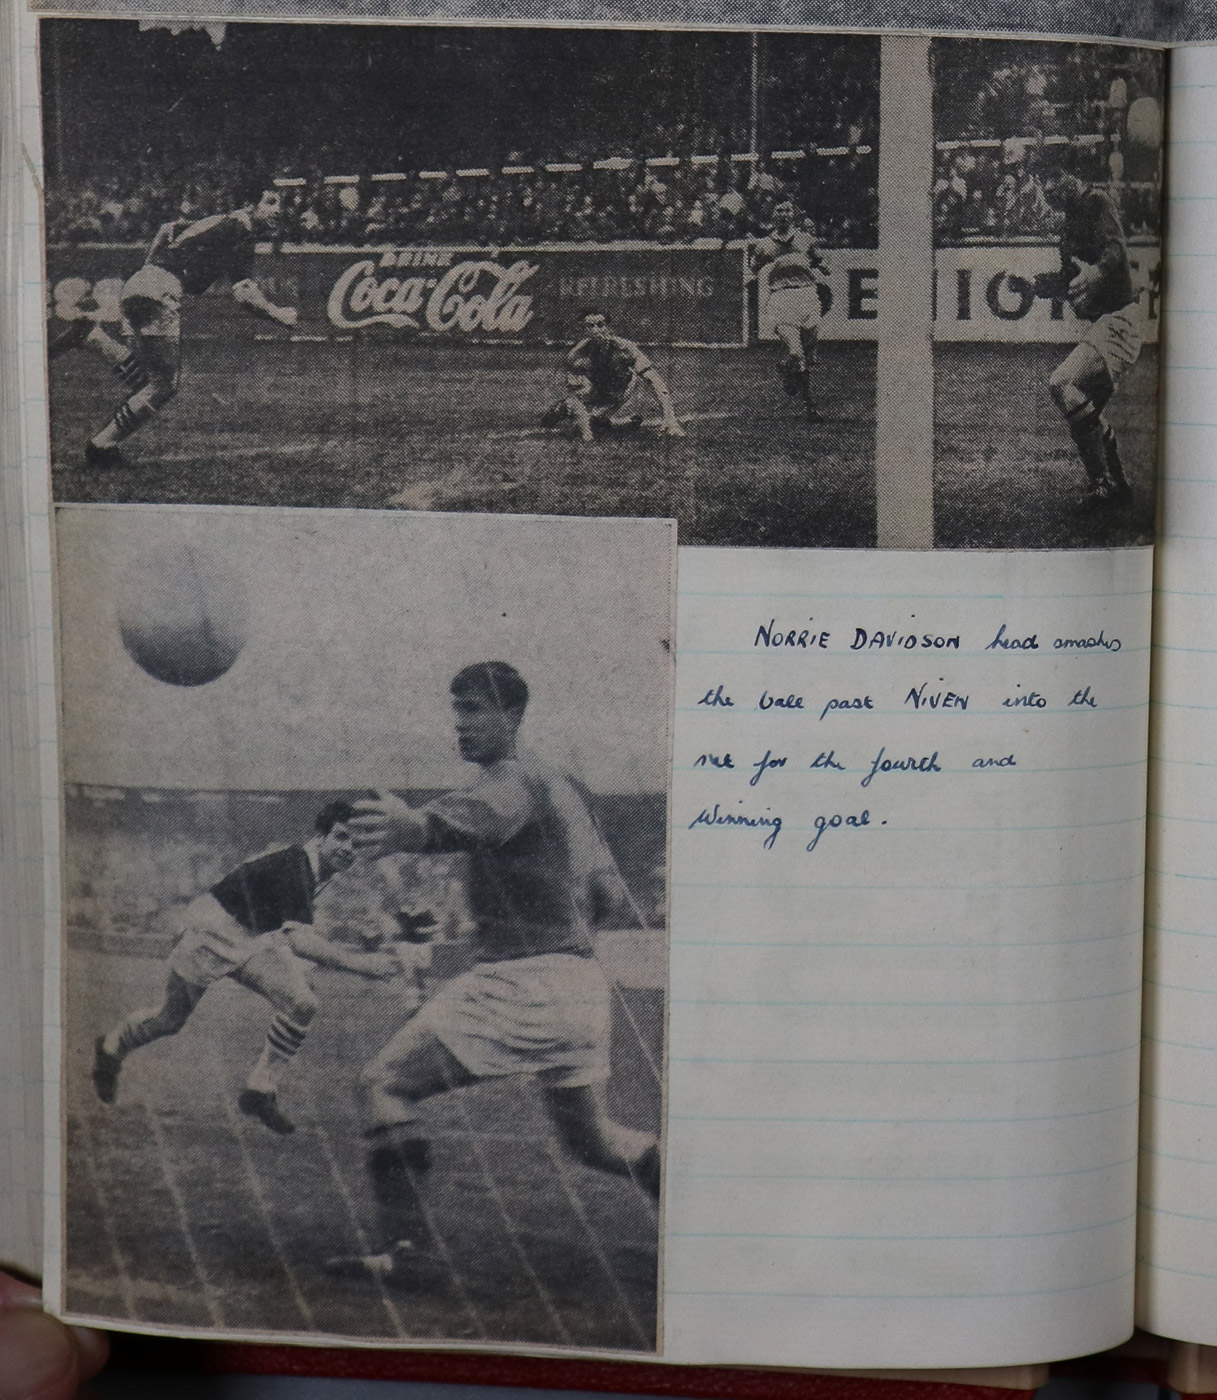 DRINK
Coca-Cola
REFRESHING
SENIOR
NORRIE DAVIDSON head smashes
the ball past NIVEN into the
net for the fourth and
winning goal.